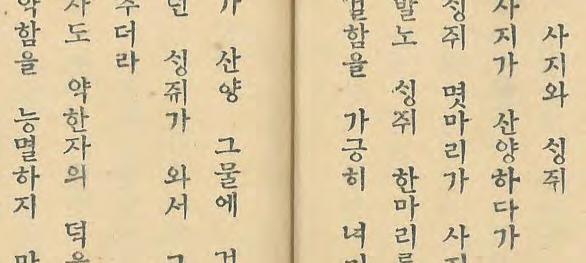 사지와 싱쥐
사지가 산양하다가
싱쥐 몃마리가
발노 싱쥐 한마리를
가긍히
가 산양 그물에
던 싱쥐가 와서
주더라
사도 약한자의 덕을
약함을 능멸하지